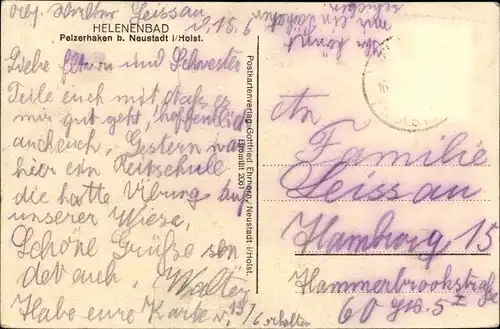 Leissau
d. 15. 6
HELENENBAD
Pelzerhaken b. Neustadt i/Holst.
Liebe Eltern und Schwester
Teile euch mit daß es
mir gut geht, hoffentlich
auch euch, Gestern war
hier ein Reitschule
die hatte Übung auf
unserer Wiese,
Schöne Grüße sen
det euch, Walter
Habe eure Karte v. 13/6 erhalten
Ihr könnt
mir ein
schicken
Postkartenverlag Gottfried Ehrhorn, Neustadt i/Holst.
An
Familie
Leissau
Hamburg 15
Hammerbrookstraße
60 Hs. 5